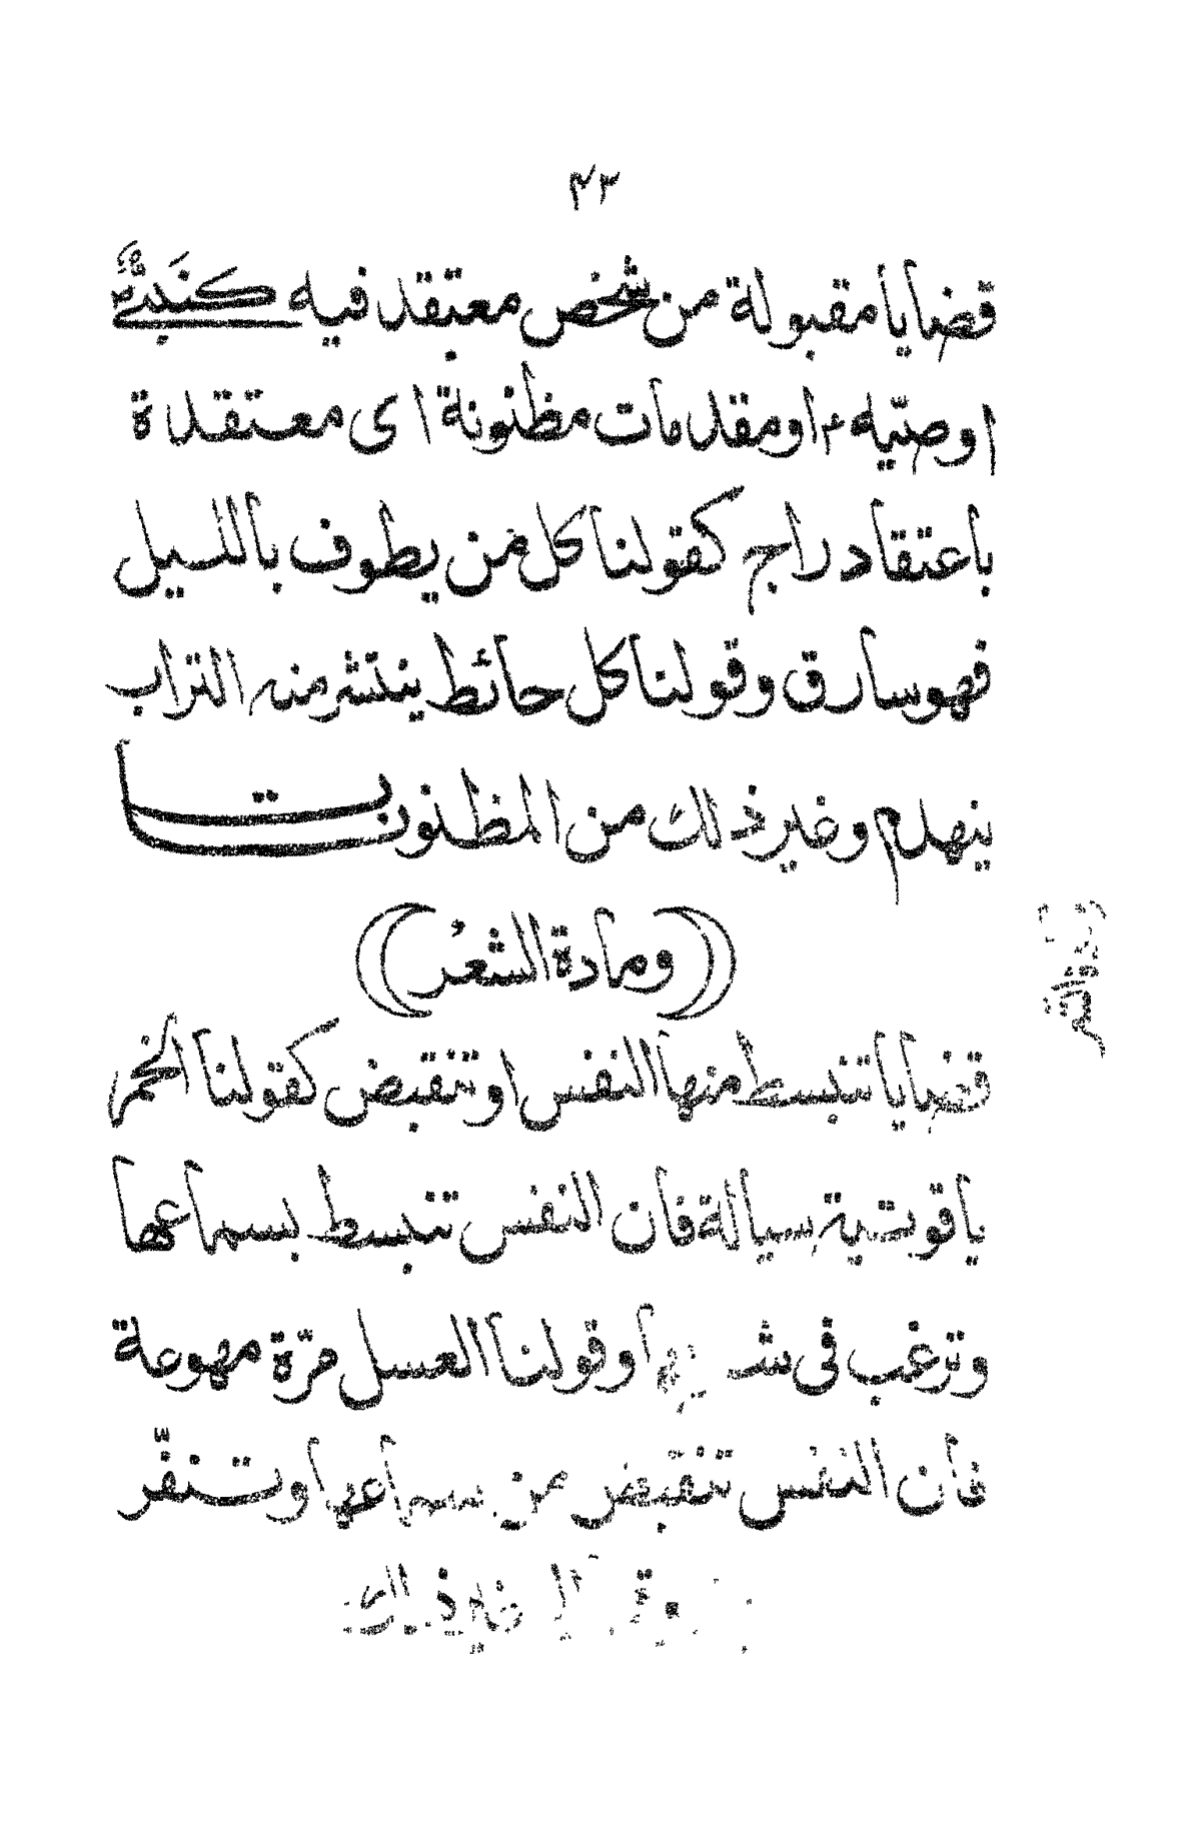 ۴۳
قضايا مقبولة من شخص معتقد فيه كنبيّ
او صيّه ۴ او مقدمات مظنونة اى معتقداة
باعتقاد راجح كقولنا كل من يطوف بالليل
فهو سارق وقولنا كل حائط ينتشر منه التراب
ينهدم وغير ذلك من المظنونات
(ومادة الشعر)
قضايا تنبسط منها النفس او تنقبض كقولنا الخمر
ياقوتية سيالة فان النفس تنبسط بسماعها
وترغب فى او قولنا العسل مرّة مهوعة
فان النفس تنقبض من سماعها وتنفّر
غير ذلك